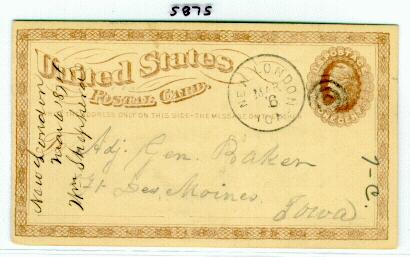 5875
United States
Postal Card.
ADDRESS ONLY ON THIS SIDE-THE MESSAGE ON THE OTHER
NEW LONDON
MAR
6
IOA
New London
Wm Stephens
Adj. Gen. Baker
Ft Des Moines
Iowa